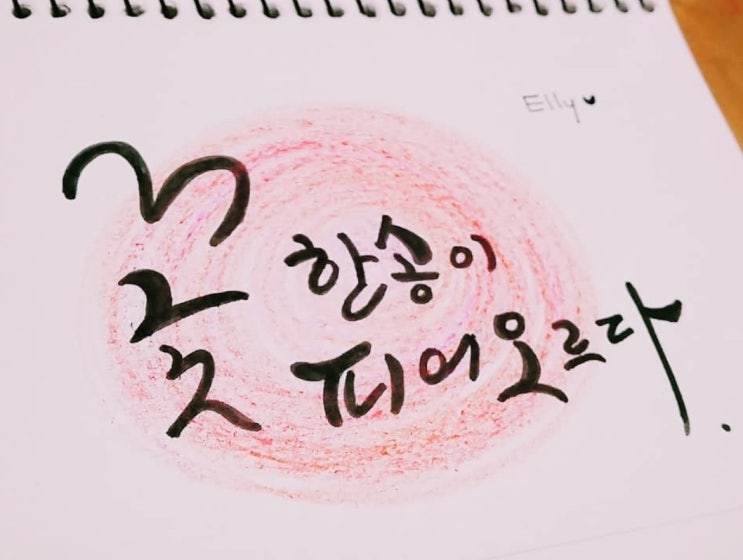 Elly♥
꽃 한송이
피어오르다.